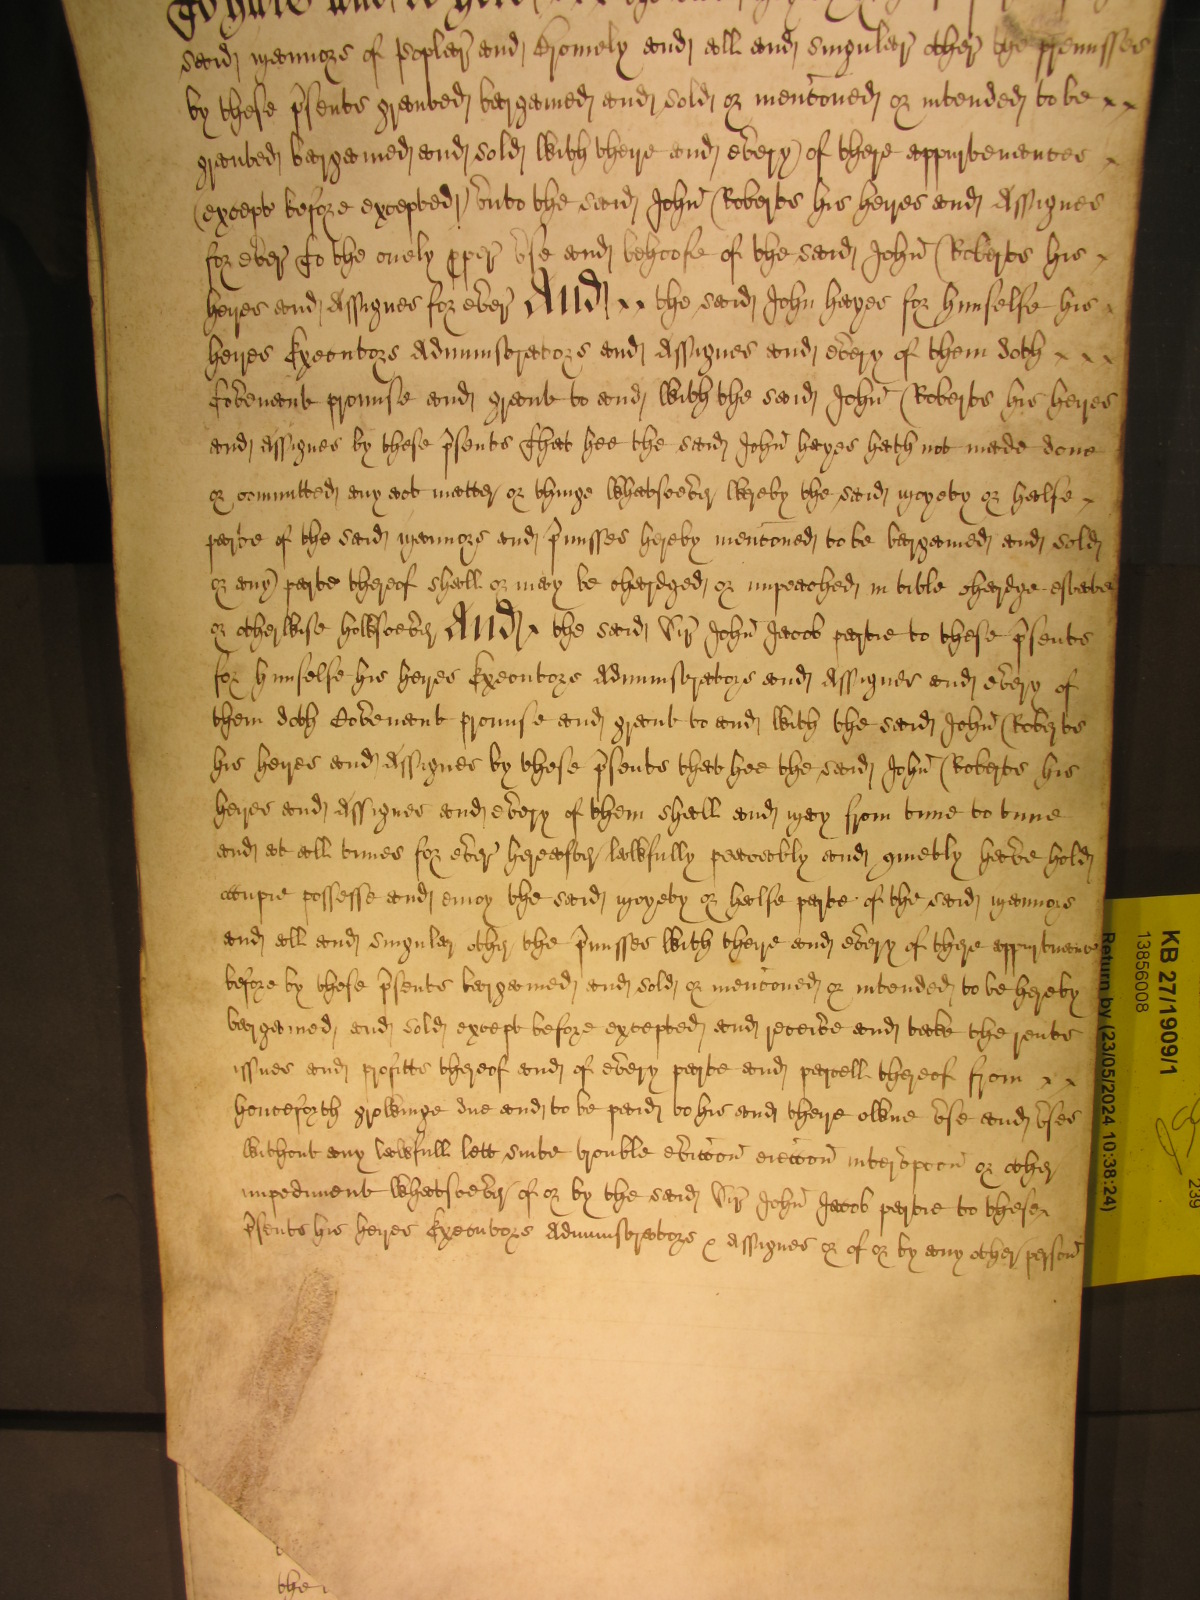 To have and to hold
said mannors of Popler and Bromely and all and singuler other the premisses
by these p̃sents graunted bargained and sold or menc̃oned or intended to be
graunted bargained and sold With theire and eṽery of there appurtenances
(except before excepted) ṽnto the said John̄ Roberts his heires and Assignes
for eṽer To the onely ꝓper ṽse and behoofe of the said John̄ Roberts his
heires and Assignes for eṽer And the said John hayes for himselfe his
heires Executors Administrators and Assignes and eṽery of them doth
Coṽenant promise and graunt to and With the said John̄ Roberts his heires
and Assignes by these p̃sents That hee the said John̄ hayes hath not made done
or committed any act matter or thinge Whatsoeṽer Wereby the said moyety or halfe
parte of the said mannors and p̃misses hereby menc̃oned to be bargained and sold
or any parte thereof shall or may be chardged or impeached in title chardge estate
or otherWise hoWsoeṽer And the said Sir John̄ Jacob partie to these p̃sents
for himselfe his heires Executors Administrators and Assignes and eṽery of
them doth Coṽenant promise and graunt to and With the said John̄ Roberts
his heires and Assignes by these p̃sents that hee the said John̄ Roberts his
heires and Assignes and eṽery of them shall and may from time to time
and at all times for eṽer hereafter laWfully peaceably and quietly haṽe hold
occupie possesse and enioy the said moyety or halfe parte of the said mannors
and all and singuler other the p̃misses With theire and eṽery of there appurtnance
before by these p̃sents bargained and sold or menc̃oned or intended to be hereby
bargained and sold except before excepted and receiṽe and take the rents
issues and profitts thereof and of eṽery parte and parcell thereof from
henceforth groWinge due and to be paid to his and theire oWne ṽse and ṽses
Without any laWfull lett suite trouble eṽicc̃on eiecc̃on interrupc̃on or other
impediment Whatsoeṽer of or by the said Sir John̄ Jacob partie to these
p̃sents his heires Executors Administrators & Assignes or of or by any other person̄
the
KB 27/1909/1
13856008
Return by (23/05/2024 10:38:24)
239